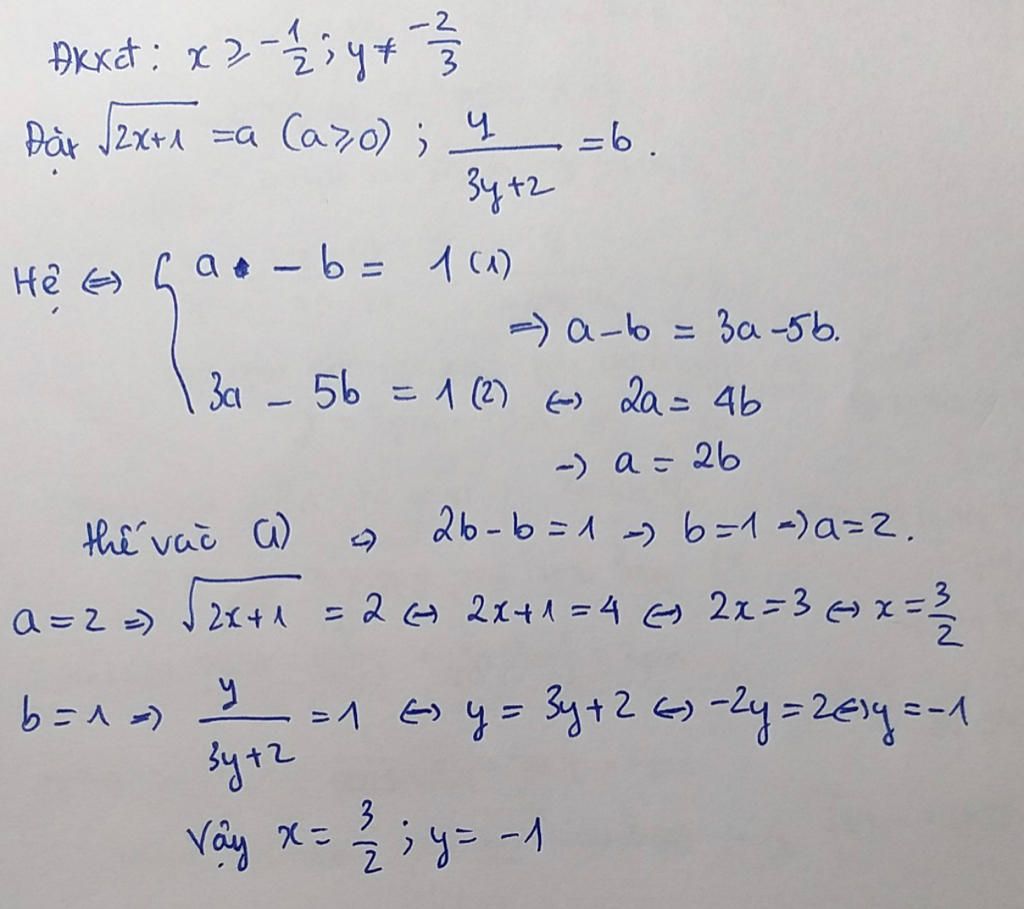 Đkxđ: x ≥ -1/2; y ≠ -2/3
Đặt √(2x+1) = a (a≥0); y/(3y+2) = b.
Hệ ⇔ { a - b = 1 (1)
⇒ a-b = 3a-5b.
3a - 5b = 1 (2) ⇔ 2a = 4b
→ a = 2b
thế vào (1) ⇒ 2b-b=1 → b=1 → a=2.
a=2 ⇒ √(2x+1) = 2 ⇔ 2x+1=4 ⇔ 2x=3 ⇔ x=3/2
b=1 ⇒ y/(3y+2) = 1 ⇔ y = 3y+2 ⇔ -2y=2 ⇔ y=-1
Vậy x = 3/2; y = -1